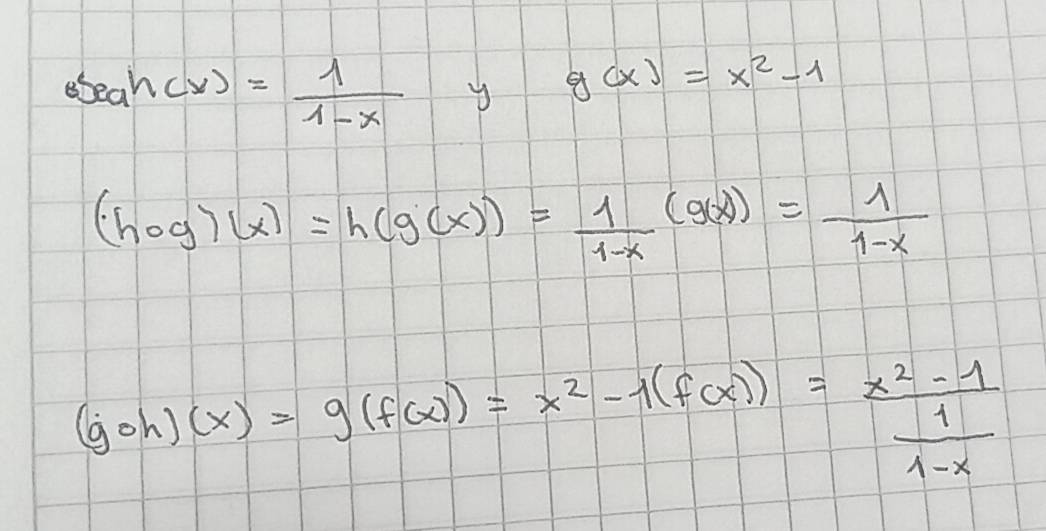 Sea h(x) = 1/(1-x) y g(x) = x² - 1
(h∘g)(x) = h(g(x)) = 1/(1-x) (g(x)) = 1/(1-x)
(g∘h)(x) = g(f(x)) = x² - 1(f(x)) = (x² - 1)/(1/(1-x))